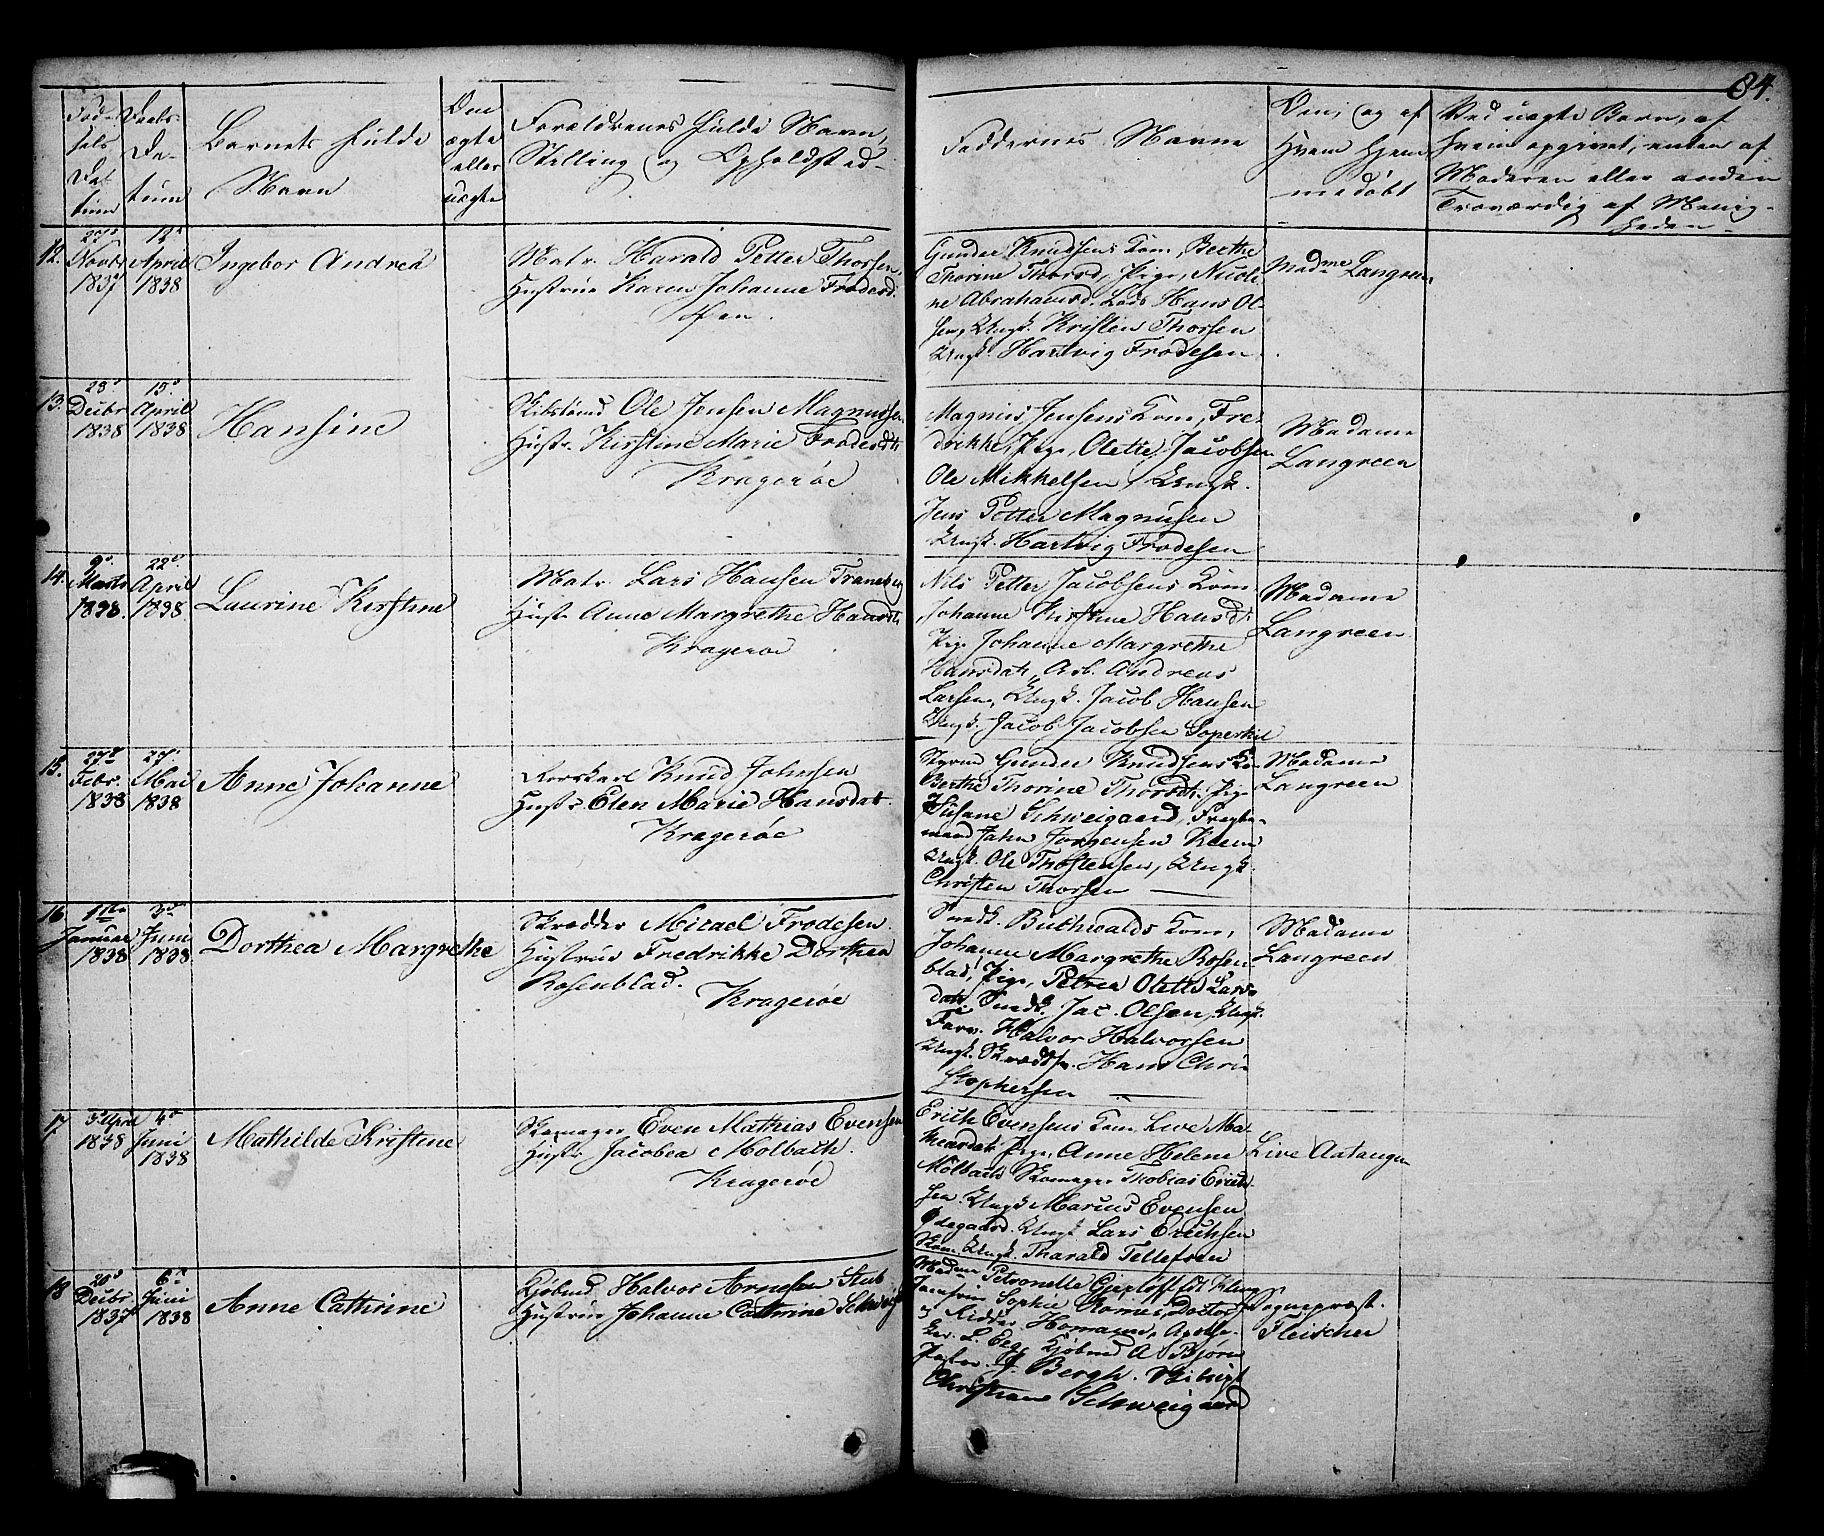 84.
Fød-
sels
Da-
tum
Daabs-
Da-
tum
Barnets fulde
Navn
Om
ægte
eller
uægte
Forældrenes fulde Navn,
Stilling og Opholdsted-
Faddernes Navne
Om, og af
Hvem hjem-
medøbt
Ved uægte Børn, af
hvem opgivet, enten af
Moderen eller anden
Troværdig af Menig-
heden-
12.
Novbr
1837
April
1838
Ingebor Andrea
Matr. Harald Petter Thorsen,
Hustrue Karen Johanne Frodesd.
Gunder Knudsens Kone, Berthe
Thorine Thorsd, Pige, Nicoli-
ne Abrahamsd. Lods Hans Ol-
sen, Ungk. Kristen Thorsen
Ungk. Hartvig Frodesen.
Madme Langreen
13.
Decbr
1838
15d
April
1838
Hansine
Ole Jensen Magnussen
Hust. Kirstine Marie Frodesdt
Kragerøe
Magnus Jensens Kone, Fre-
drikke, Pige, Olette Jacobsen
Ole Mikkelsen, Ungk.
Jens Petter Magnusen
Ungk. Hartvig Frodesen
Madame
Langreen
14.
9d
Marts
1838.
22d
April
1838.
Laurine Kirstine
Matr. Lars Hansen
Hust. Anne Margrethe Hansdt
Kragerøe
Nils Petter Jacobsens Kone
Johanne Kirstine Hansdt
Pige Johanne Margrethe
Hansdatr, Arb. Andreas
Larsen, Ungk. Jacob Hansen
Ungk. Jacob Jacobsen
Madame
Langreen
15.
27d
Febr.
1838
27d
Mai
1838
Anne Johanne
Knud Johnsen
Hust. Elen Marie Hansdat.
Kragerøe
Styrmd Gunder Knudsens Ko
Berthe Thorine Thorsdt. Pige
Susane Schweigaard,
Jahn Jørgensen
Ungk. Ole Thostensen, Ungk.
Christen Thorsen
Madame
Langreen
16
1ste
Januar
1838
3d
Juni
1838
Dorthea Margrethe
Skrædder Micael Frodesen.
Hustrue Fredrikke Dorthea
Rosenblad.
Kragerøe
Snedk. Buchwalds Kone,
Johanne Margrethe Rosen-
blad, Pige, Petrea Olette Lars-
datr. Snedk. Jac. Olsen, Ungk.
Farv. Halvor Halvorsen
Ungk. Hans Chri-
stophersen
Madame
Langreen
17.
3 April
1838
4d
Juni
1838
Mathilde Kristine
Skomager Even Mathias Evensen
Hustr Jacobea Molbach.
Kragerøe
Erich Evensens Kone, Live
Pige, Anne Helene
Mölbach Skomager Thobias Erich-
sen. Ungk Marius Evensen
Ødegaard. Ungk Lars Erichsen
Skom. Ungk. Tharald Tellefsen
Live Aatangen
18
Decbr
1837
6d
Juni
1838
Anne Cathrine
Kjøbmd Halvor Arnesen Stub
Hustrue Johanne Cathrine
Madme Petronelle
Jomfrue Sophie Doctor
Ridder Homann, Apothe-
ker Kjøbmd A Bjørn
Bergh.
Christiane Schweigaard
Sognepræst.
Fleischer